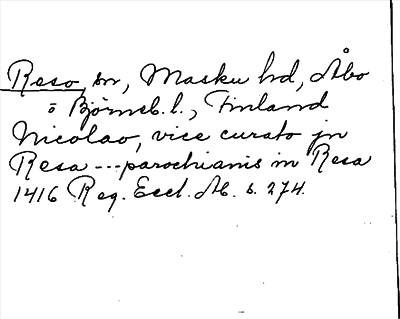 Reso, sn, Masku hd, Åbo
o Björneb. l., Finland
Nicolao, vice curato jn
Resa --- parochianis in Resa
1416 Reg. Eccl. Ab. s. 274.